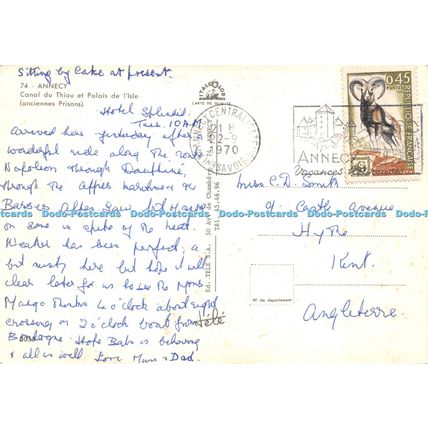 Sitting by Lake at present.
74 - ANNECY
Canal du Thiou et Palais de l'Isle
(anciennes Prisons).
CARTE DE QUALITÉ
Hotel Splendid.
Tues. 10 A.M.
arrived here yesterday after a
wonderful ride along the route
Napoleon through Dauphine,
through the Alpes
Basses Alpes. Saw lots of snow
on some in spite of the heat.
Weather has been perfect, a
bit misty here but hope it will
clear later for us to see the Mont
Margo thinks 4 o'clock about right
crossing or 2 o'clock boat from
Boulogne. Hope Bats is behaving
& all is well. Love Mum & Dad.
Tél. 45.46.96
Été
ANNECY CENTRAL
22-9
1970
HTE SAVOIE
ANNECY
Vacances
0,45
POSTES
REPUBLIQUE FRANÇAISE
Miss C. D. Smith
91 Castle Avenue
Hythe
Kent.
Angleterre.
N° de département
Dodo-Postcards Dodo-Postcards Dodo-Postcards Dodo-Postcards Dodo-Postcards